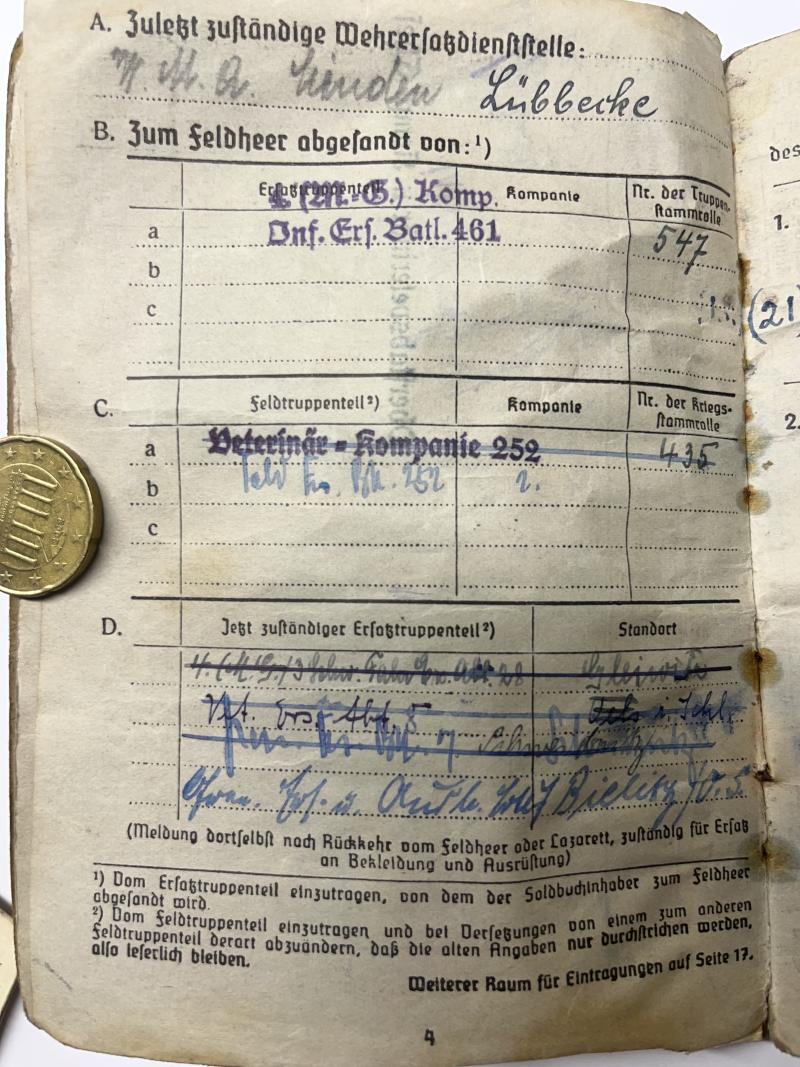 A. Zuletzt zuständige Wehrersatzdienststelle:
W. M. A. Minden Lübbecke
B. Zum Feldheer abgesandt von:¹)
Ersatztruppenteil Kompanie Nr. der Truppen-
stammrolle
4 (M.-G.) Komp.
a Inf. Ers. Batl. 461 547
b
c
(21
C. Feldtruppenteil²) Kompanie Nr. der Kriegs-
stammrolle
a Veterinär-Kompanie 252 435
b Feld 252 2.
c
D. Jetzt zuständiger Ersatztruppenteil²) Standort
4. (M.G.) 28 Gleiwitz
Vet. Ers. Abt. 8 Oels i. Schl.
Gren. Ers. u. Ausb. Bielitz
(Meldung dortselbst nach Rückkehr vom Feldheer oder Lazarett, zuständig für Ersatz
an Bekleidung und Ausrüstung)
¹) Vom Ersatztruppenteil einzutragen, von dem der Soldbuchinhaber zum Feldheer
abgesandt wird.
²) Vom Feldtruppenteil einzutragen und bei Versetzungen von einem zum anderen
Feldtruppenteil derart abzuändern, daß die alten Angaben nur durchstrichen werden,
also leserlich bleiben.
Weiterer Raum für Eintragungen auf Seite 17.
4
des
1.
2.